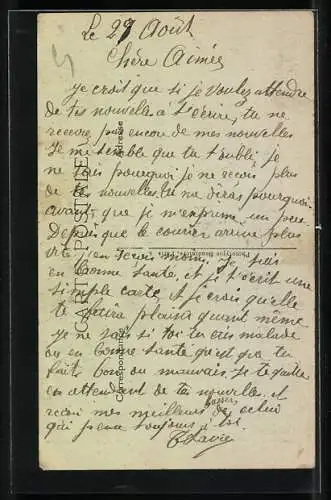 Le 29 Août
Chère Aimée
je croit que si je voulez attendre
de tes nouvelles à t'écrire, tu ne
recevra pas encore de mes nouvelles
Je me semble que tu t'oublie, je
ne sais pourquoi je ne reçois plus
de tes nouvelles tu me diras pourquoi
avant que je m'enprime un peu
Depuis que le courrier arrive plus
vite j'en reçois moins. Je suis
en bonne santé, et je t'écrit une
simple carte et je crois qu'elle
te fera plaisir quand même
Je ne sais si toi tu est malade
ou en bonne santé qu'est que tu
fait bon ou mauvais. Je te quitte
en attendant de tes nouvelles et
reçoi mes meilleurs baisers de celui
qui pense toujours à toi.
CARTE POSTALE
Correspondance
Adresse